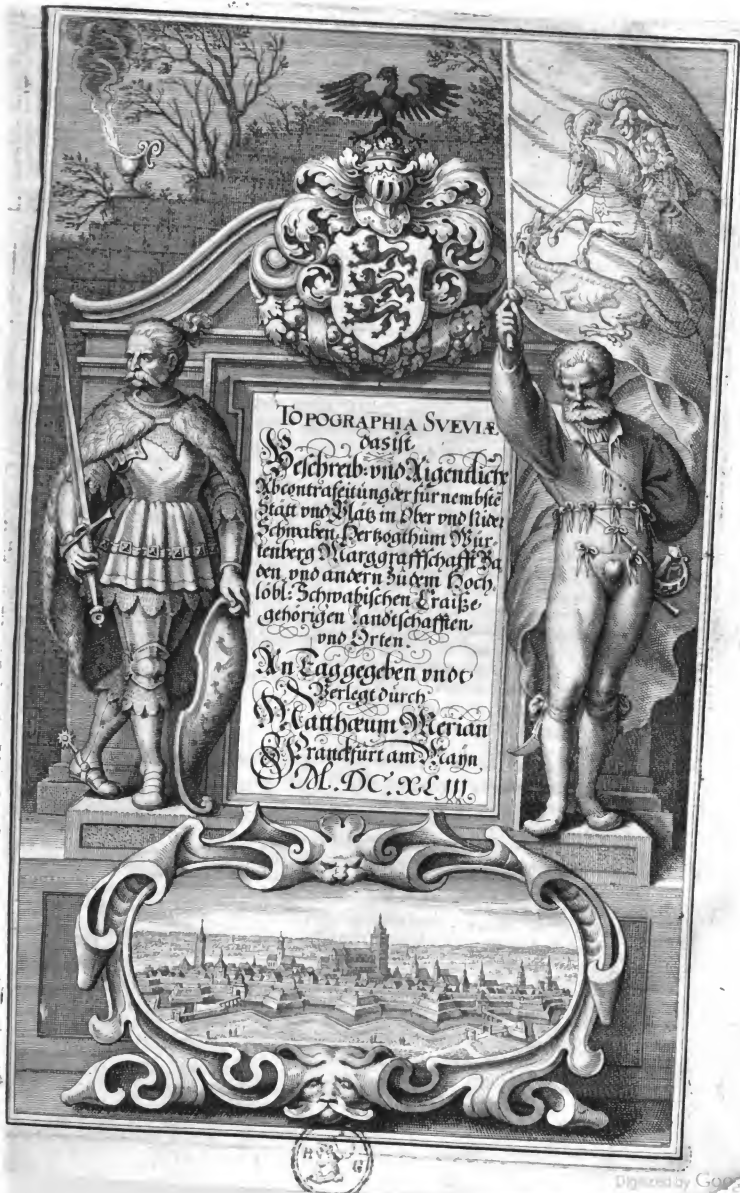 TOPOGRAPHIA SVEVIÆ
das ist
Beschreib: vnd Aigendliche
Abcontrafeitung der fürnembste
Stätt vnd Plätz in Ober vnd Nider
Schwaben, Hertzogthum Wür-
tenberg Marggraffschafft Ba
den, vnd andern zu dem Hoch-
löbl: Schwabischen Craiße
gehörigen Landtschafften
vnd Orten.
An Tag gegeben vndt
Verlegt durch
Matthæum Merian
Franckfurt am Mayn
M.DC.XLIII
Digitized by